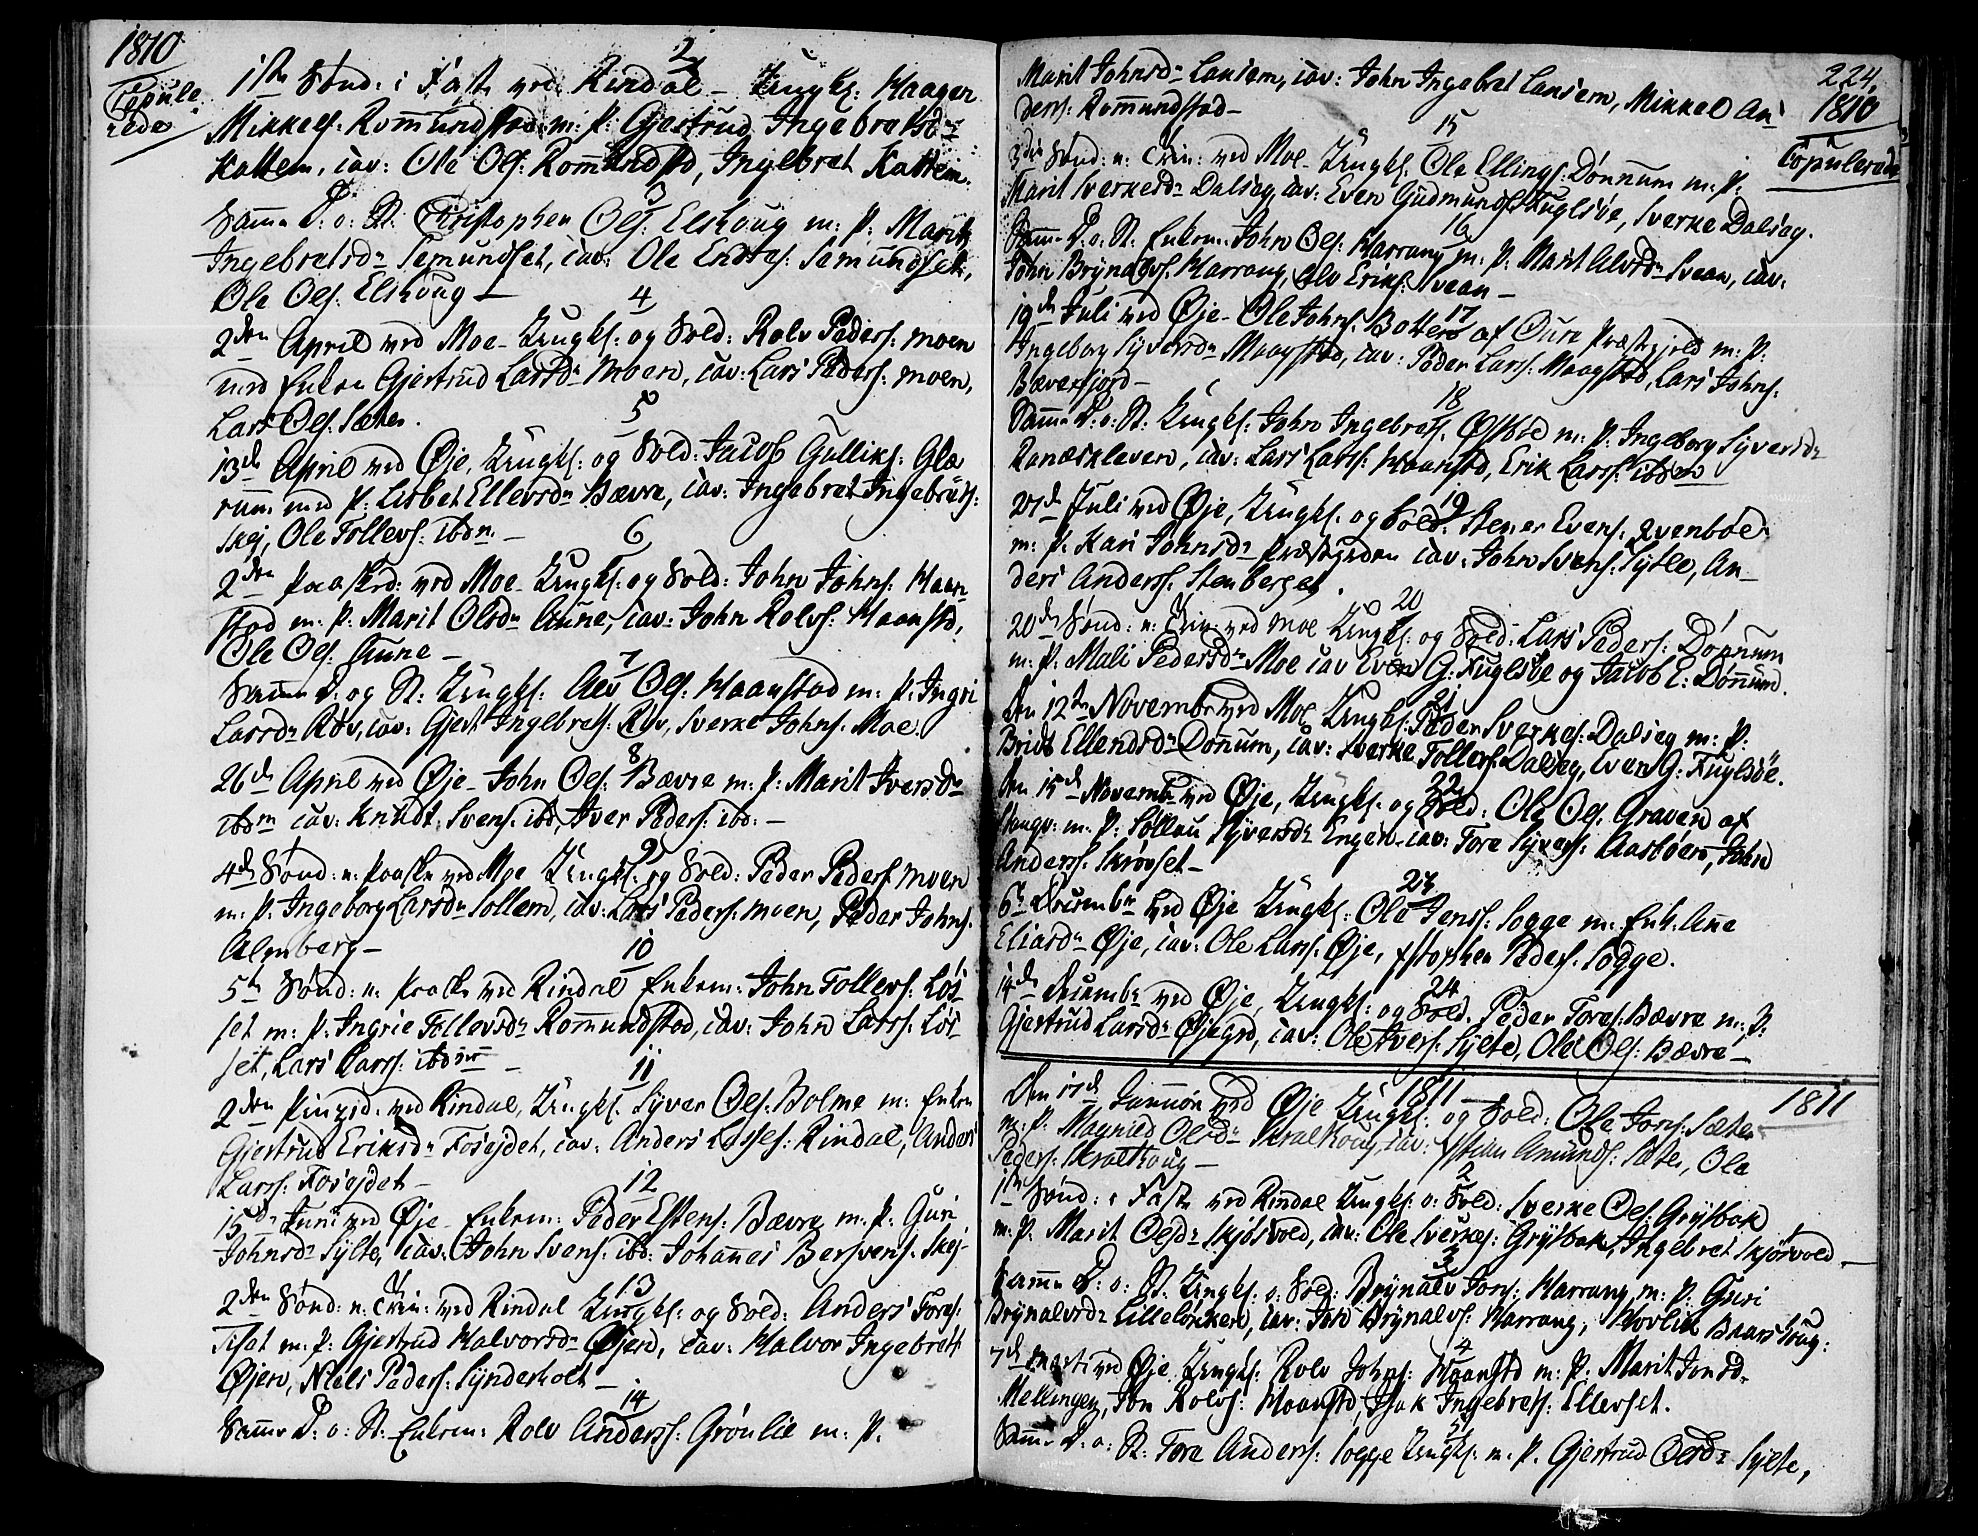 1810
Copule-
rede
2
1ste Sønd: i Faste ved Rindal - Ungkl: Haagen
Mikkels: Rommundstad m: P: Gjertrud Ingebretsdr
Kattem, cav: Ole Ols: Rommundstd, Ingebret Kattem.
3
Samme D: o: St: Christopher Ols: Elshoug m: P: Marit
Ingebretsdr Semundset, cav: Ole Endres: Semundset,
Ole Ols: Elshoug -
4
2den April ved Moe - Ungkl: og Sold: Rolv Peders: Moen
med Enken Gjertrud Larsdr Moen, cav: Lars Peders: Moen,
Lars Ols: Sæter.
5
13de April ved Øje, Ungkl: og Sold: Jacob Gulliks: Glæ
rum med P: Lisbet Ellevsdr Bævre, cav: Ingebret Ingebrets:
Skej, Ole Tollevs: ibdm. -
6
2den Paasked: ved Moe - Ungkl: og Sold: John Johns: Haan
stad m: P: Marit Olsdr Aune, cav: John Rolvs: Haanstd,
Ole Ols: Aune -
7
Samme D: og St: Ungkl: Alv Ols: Haanstad m: P: Ingri
Larsdr Røv, cav: Gjert Ingebrets: Røv, Sverke Johns: Moe.
8
26de April ved Øje - John Ols: Bævre m: P: Marit Iversdr
ibdm cav: Knudt Svens: ibd, Iver Peders: ibd: -
9
4de Sønd: n: Paaske ved Moe Ungkl: og Sold: Peder Peders: Moen
m: P: Ingeborg Larsdr Sollem, cav: Lars Peders: Moen, Peder Johns:
Almberg -
10
5te Sønd: n: Paaske ved Rindal Enkem: John Tollevs: Løs
set m: P: Ingrie Tollevsdr Rommundstad, cav: John Larss: Løs
set, Lars Larss: ibdm -
11
2den Pinzed: ved Rindal, Ungkl: Syver Ols: Bolme m: Enken
Gjertrud Eriksdr Fosejdet, cav: Anders Lasses: Rindal, Anders
Larss: Fosejdet -
12
15de Juni ved Øje - Enkem: Peder Estens: Bævre m: P: Guri
Johnsdr Sylte, cav: John Svens: ibd: Johannes Bersvens: Skej -
13
2den Sønd: n: Trin: ved Rindal Ungkl: og Sold: Anders Tores:
Tiset m: P: Gjertrud Halvorsdr Øjen, cav: Halvor Ingebrets:
Øjen, Niels Peders: Synderholt -
14
Samme D: o: St: Enkem: Rolv Anderss: Grønlie m: P:
224.
1810
Copulerede
Marit Johnsdr Lansem, cav: John Ingebret Lansem, Mikkel An
derss: Rommundstad -
15
3die Sønd: n: Trin: ved Moe - Ungkl: Ole Ellings: Dønnum m: P:
Marit Sverkesdr Dalseg, cav: Even Gudmunds: Fuglsøe, Sverke Dalseg.
16
Samme D: o: St: Enkem: John Ols: Harrang m: P: Marit Alvsdr Svean, cav:
John Brynalds: Harrang, Alv Eriks: Svean -
17
19de Juli ved Øje - Ole Johns: Botten af Oure Præstegjeld m: P:
Ingeborg Syversdr Maagstad, cav: Peder Larss: Maagstad, Lars Johns:
Bæverfjord -
18
Samme D: o: St: Ungkl: John Ingebrets: Østbøe m: P: Ingeborg Syversdr
Ranæskleven, cav: Lars Larss: Haanstd, Erik Larss: ibdem
19
27de Juli ved Øje, Ungkl: og Sold: Stener Evens: Qvenbøe
m: P: Kari Johnsdr Præstgrden cav: John Svens: Sylte, An-
ders Anderss: Stenberget.
20
20de Sønd: n: Trin: ved Moe Ungkl: og Sold: Lars Peders: Dønnum
m: P: Mali Pedersdr Moe cav Even G: Fuglsøe og Jacob E: Dønnum.
21
Den 12te Novembr ved Moe Ungkl: Peder Sverkes: Dalseg m: P:
Bridt Ellendsdr Dønnum, cav: Sverke Tollevs: Dalseg, Even G: Fuglsøe.
22
Den 15de Novembr ved Øje, Ungkl: og Sold: Ole Ols: Graven af
Stangv: m: P: Sollau Syversdr Engen - cav: Tore Syvers: Aasbøen, John
Anderss: Skrøvset -
23
6te Decembr ved Øje Ungkl: Ole Jenss: Sogge m: Enk: Ane
Eliasdr Øje, cav: Ole Larss: Øje, Christopher Peders: Sogge.
24
14de Decembr ved Øje, Ungkl: og Sold: Peder Tores: Bævre m: P:
Gjertrud Larsdr Øjegrd, cav: Ole Ivers: Sylte, Ole Ols: Bævre -
1811
1811
Den 17de Januar ved Øje Ungkl: og Sold: Ole Jons: Sæter
m: P: Magnild Olsdr Skralthoug, cav: Christian Amunds: Sæter, Ole
Peders: Skralthoug -
2
1ste Sønd: i Faste ved Rindal Ungkl: o: Sold: Sverke Ols: Grytbak
m: P: Marit Olsdr Skjølsvold, cav: Ole Sverkes: Grytbak, Ingebret Skjølsvold -
3
Samme D: o: St: Ungkl: o: Sold: Brynald Jons: Harrang m: P: Guri
Brynalvsdr Lilleløkken, cav: Jon Brynalvs: Harrang,
4
7de Marts ved Øje Ungkl: Rolv Johns: Haanstd m: P: Marit Jonsdr
Mellingen, Jon Rolvs: Haanstd, Isak Ingebrets: Ellevset.
5
Samme D: o: St: Tore Anderss: Sogge Ungkl: m: P: Gjertrud Olsdr Sylte,